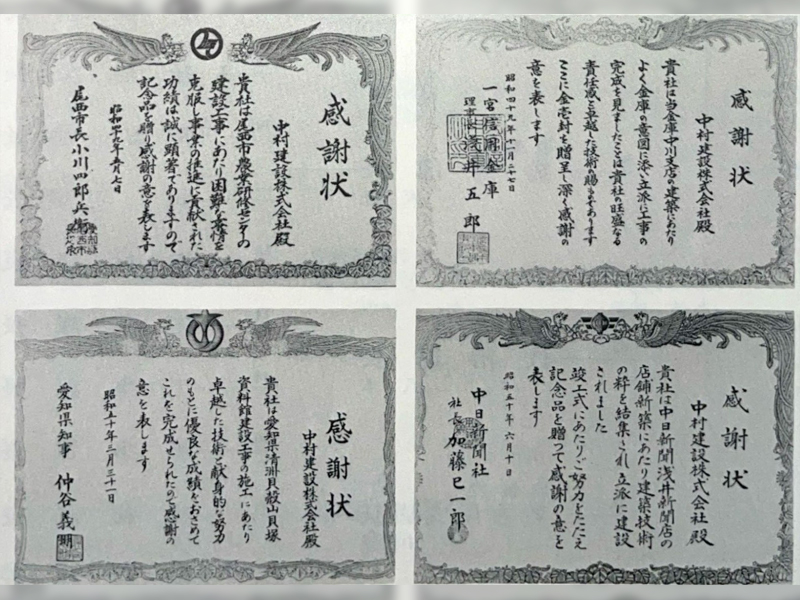 感謝状
中村建設株式会社殿
貴社は尾西市農業研修センターの
建設工事にあたり困難な事情を
克服し事業の推進に貢献された
功績は誠に顕著でありますので
記念品を贈り感謝の意を表します
尾西市長 小川四郎兵衛
感謝状
中村建設株式会社殿
貴社は当金庫中川支店の建築にあたり
よく金庫の意図に添い立派に工事の
完成を見ましたことは貴社の旺盛なる
責任感と卓越した技術の賜ものであります
ここに金壱封を贈呈し深く感謝の
意を表します
昭和四十九年十一月二十七日
一宮信用金庫
理事長 浅井五郎
感謝状
中村建設株式会社殿
貴社は愛知県清洲貝殻山貝塚
資料館建設工事の施工にあたり
卓越した技術と献身的な努力
のもとに優良な成績をおさめて
これを完成せられたので感謝の
意を表します
昭和五十年三月三十一日
愛知県知事 仲谷義明
感謝状
中村建設株式会社殿
貴社は中日新聞浅井新聞店の
店舗新築にあたり建築技術
の粋を結集され立派に建設
されました
竣工式にあたりご努力をたたえ
記念品を贈って感謝の意を
表します
昭和五十年六月十日
中日新聞社
社長 加藤巳一郎